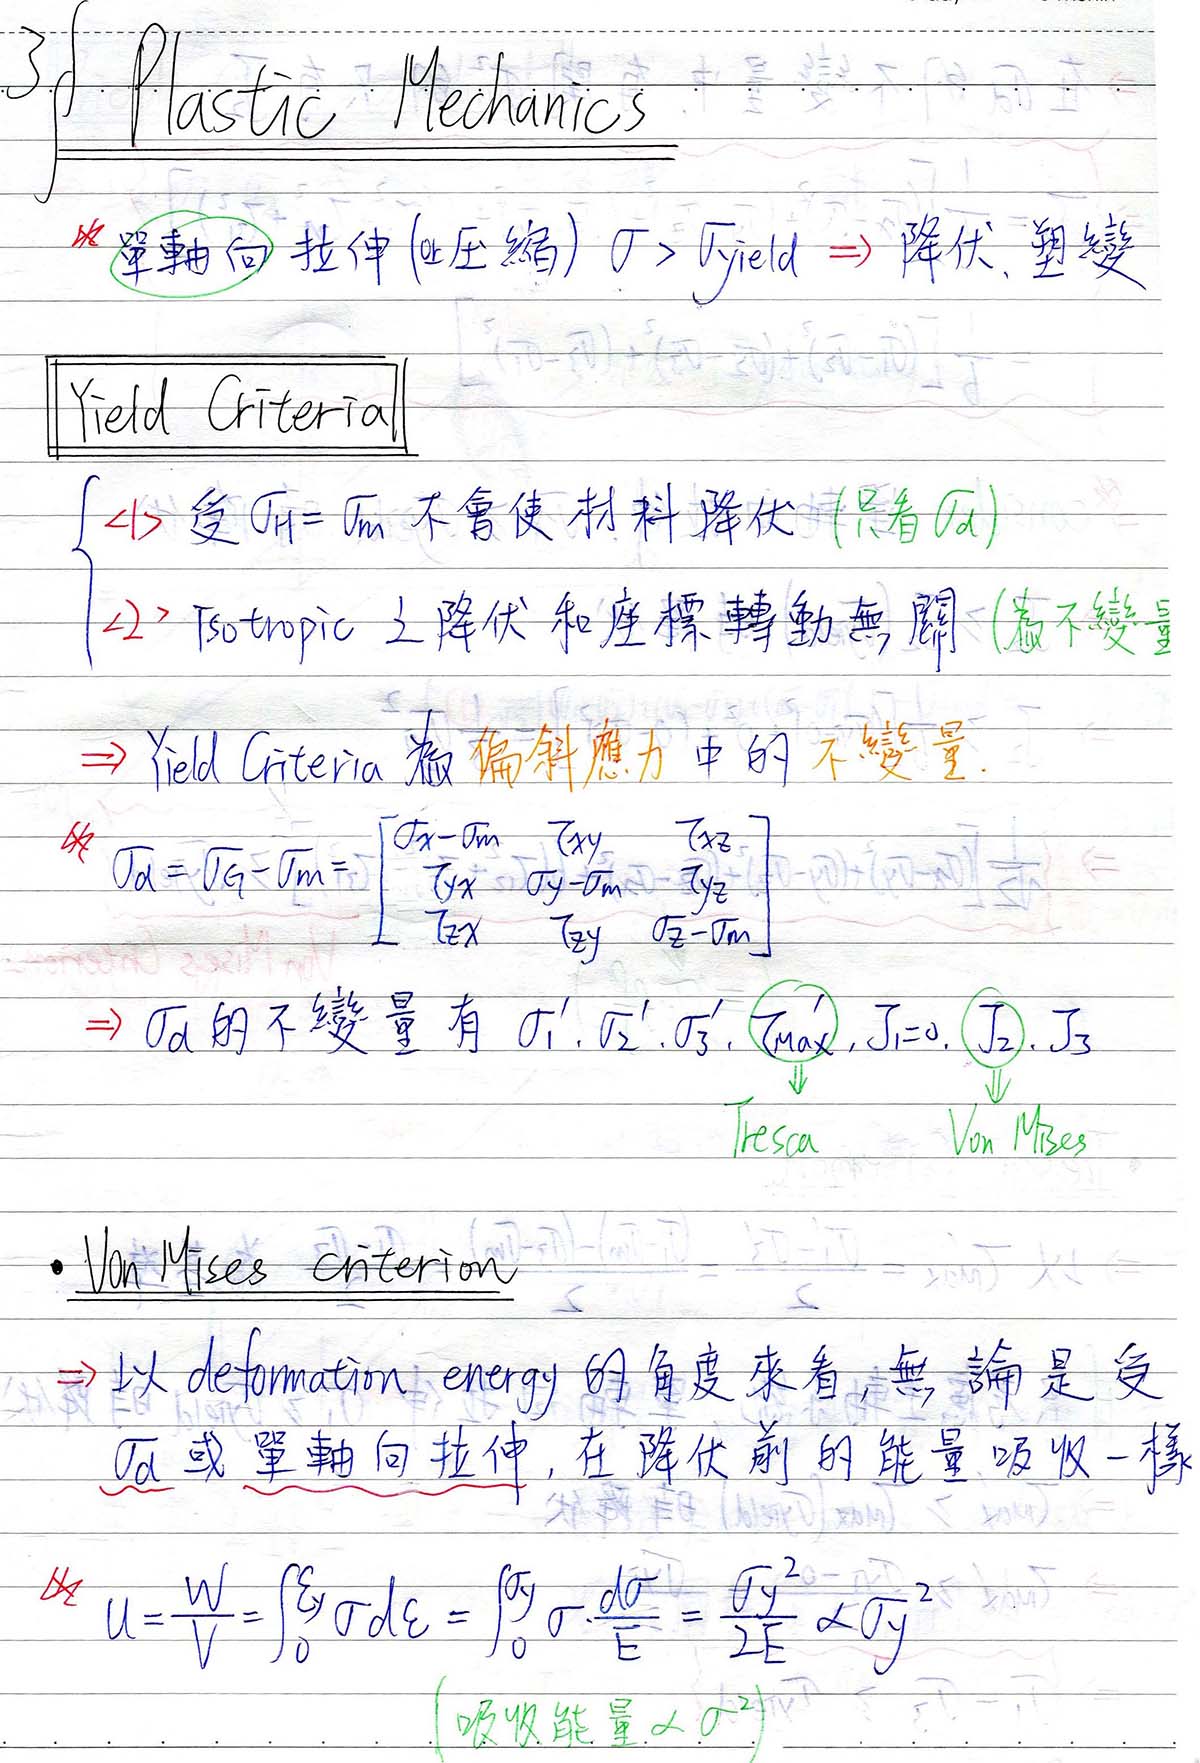 3§ Plastic Mechanics
※ 單軸向 拉伸(或压縮) σ > σyield ⇒ 降伏、塑變
Yield Criteria
<1> 受 σH = σm 不會使材料降伏 (只看 σd)
<2> Isotropic 之降伏和座標轉動無關 (為不變量
⇒ Yield Criteria 為 偏斜應力 中的 不變量.
※ σd = σG - σm = [σx-σm τxy τxz
τyx σy-σm τyz
τzx τzy σz-σm]
⇒ σd 的不變量有 σ1'. σ2'. σ3'. τmax', J1=0. J2. J3
⇓ ⇓
Tresca Von Mises
• Von Mises criterion
⇒ 以 deformation energy 的角度來看, 無論是受
σd 或單軸向拉伸, 在降伏前的能量吸收一樣
※ u = W/V = ∫₀^εy σdε = ∫₀^σy σ·dσ/E = σy²/2E ∝ σy²
(吸收能量 ∝ σ²)